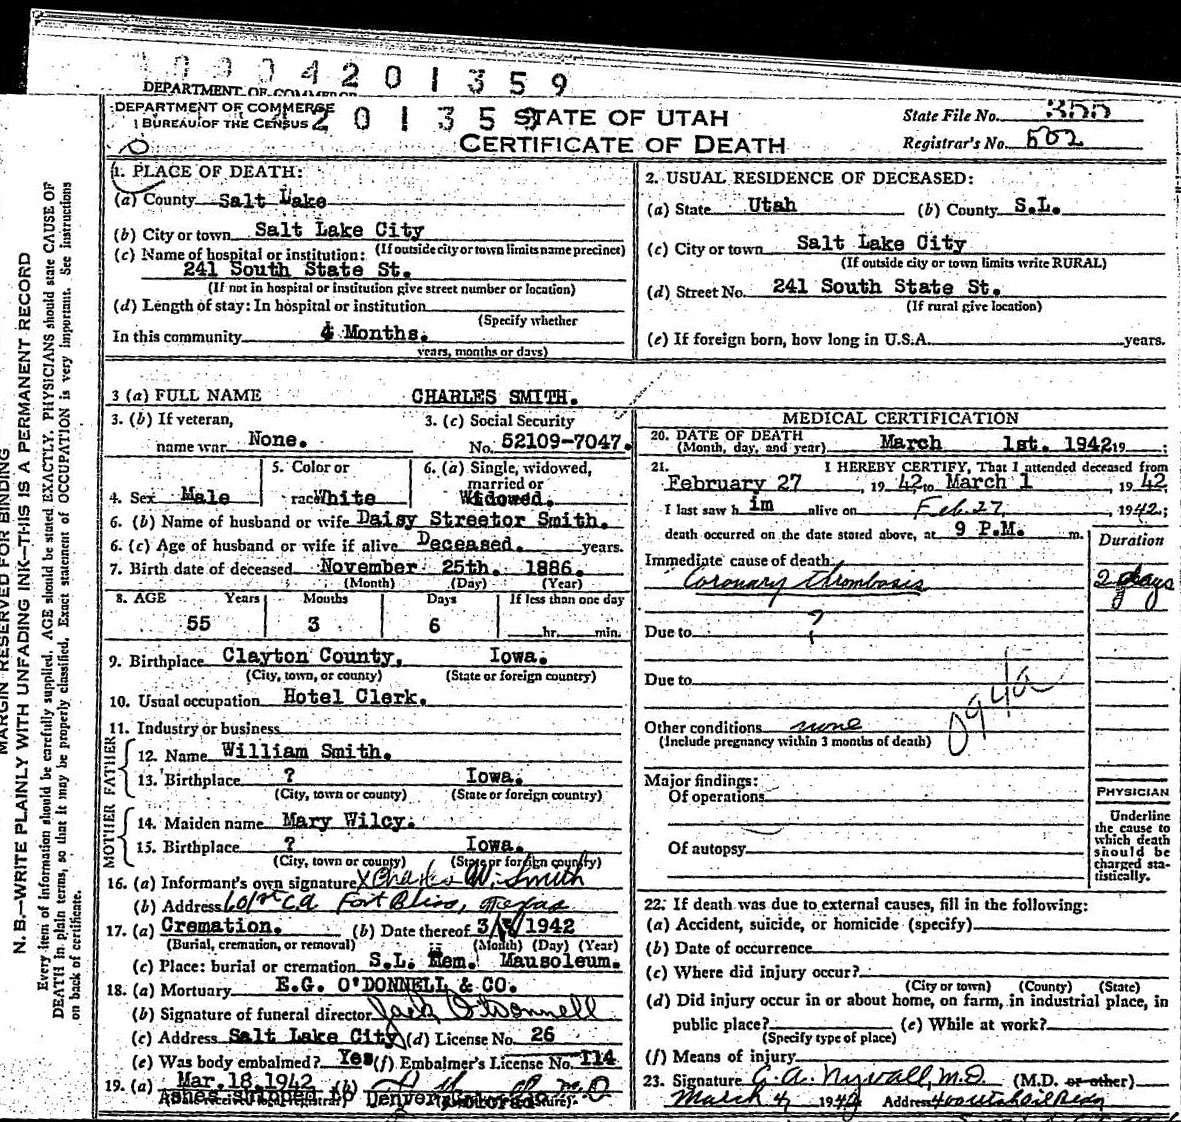 10004201359
DEPARTMENT OF COMMERCE
DEPARTMENT OF COMMERCE
BUREAU OF THE CENSUS
201359
STATE OF UTAH
CERTIFICATE OF DEATH
State File No. 355
Registrar's No. 502
MARGIN RESERVED FOR BINDING
N. B.—WRITE PLAINLY WITH UNFADING INK—THIS IS A PERMANENT RECORD
Every item of information should be carefully supplied. AGE should be stated EXACTLY. PHYSICIANS should state CAUSE OF
DEATH in plain terms, so that it may be properly classified. Exact statement of OCCUPATION is very important. See instructions
on back of certificate.
1. PLACE OF DEATH:
(a) County Salt Lake
(b) City or town Salt Lake City
(If outside city or town limits name precinct)
(c) Name of hospital or institution:
241 South State St.
(If not in hospital or institution give street number or location)
(d) Length of stay: In hospital or institution
(Specify whether
In this community 4 Months.
years, months or days)
2. USUAL RESIDENCE OF DECEASED:
(a) State Utah (b) County S.L.
(c) City or town Salt Lake City
(If outside city or town limits write RURAL)
(d) Street No. 241 South State St.
(If rural give location)
(e) If foreign born, how long in U.S.A. years.
3 (a) FULL NAME CHARLES SMITH.
3. (b) If veteran,
name war None.
3. (c) Social Security
No. 52109-7047.
4. Sex Male
5. Color or
race White
6. (a) Single, widowed,
married or
Widowed.
6. (b) Name of husband or wife Daisy Streetor Smith.
6. (c) Age of husband or wife if alive Deceased. years.
7. Birth date of deceased November 25th. 1886.
(Month) (Day) (Year)
8. AGE Years Months Days If less than one day
55 3 6 hr. min.
9. Birthplace Clayton County, Iowa.
(City, town, or county) (State or foreign country)
10. Usual occupation Hotel Clerk.
11. Industry or business
FATHER
12. Name William Smith.
13. Birthplace ? Iowa.
(City, town or county) (State or foreign country)
MOTHER
14. Maiden name Mary Wilcy.
15. Birthplace ? Iowa.
(City, town or county) (State or foreign county)
16. (a) Informant's own signature X Charles W. Smith
(b) Address 601st C.A Fort Bliss, Texas
17. (a) Cremation. (b) Date thereof 3/ /1942
(Burial, cremation, or removal) (Month) (Day) (Year)
(c) Place: burial or cremation S.L. Mem. Mausoleum.
18. (a) Mortuary E.G. O'DONNELL & CO.
(b) Signature of funeral director Jack O'Donnell
(c) Address Salt Lake City (d) License No. 26
(e) Was body embalmed? Yes (f) Embalmer's License No. 114
19. (a) Mar.18.1942 (b) M.D
Ashes shipped to Denver Colorado
MEDICAL CERTIFICATION
20. DATE OF DEATH
(Month, day, and year) March 1st. 1942 19 ;
21. I HEREBY CERTIFY, That I attended deceased from
February 27 , 19 42, to March 1 , 19 42;
I last saw h im alive on Feb. 27, , 1942;
death occurred on the date stated above, at 9 P.M. m.
Duration
Immediate cause of death
Coronary thrombosis 2 days
Due to ?
Due to
094/a
Other conditions none
(Include pregnancy within 3 months of death)
Major findings:
Of operations
Of autopsy
PHYSICIAN
Underline
the cause to
which death
should be
charged sta-
tistically.
22. If death was due to external causes, fill in the following:
(a) Accident, suicide, or homicide (specify)
(b) Date of occurrence
(c) Where did injury occur?
(City or town) (County) (State)
(d) Did injury occur in or about home, on farm, in industrial place, in
public place? (e) While at work?
(Specify type of place)
(f) Means of injury
23. Signature G. A. Nyvall, M.D. (M.D. or other)
March 4, 1942 Address 400 Utah Oil Bldg